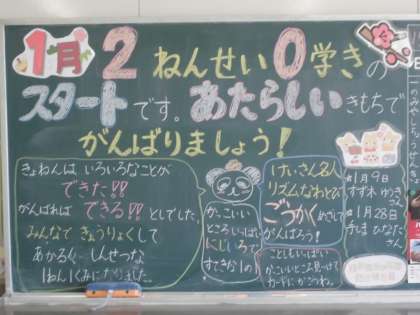 1月 2ねんせい0学きの
スタートです。あたらしいきもちで
がんばりましょう!
きょねんは いろいろなことが
できた!!
がんばれば できる!!としでした。
みんなで きょうりょくして
あかるく しんせつな
1ねん1くみになりました。
かっこいい
ところいっぱい
にじいろで
すてきな1の1
けいさん名人
リズムなわとび
ごうかくめざして
がんばろう!
ことしもいっぱい
かっこいいところ見つけて
カードにかこうね。
1月9日
すず木 ゆうき
さん
1月28日
ひなた
さん